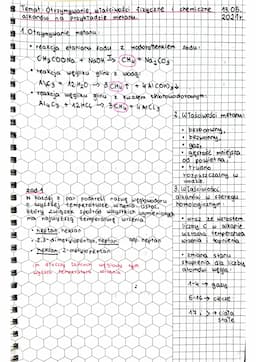 Temat: Otrzymywanie, właściwości fizyczne i chemiczne
alkanów na przykładzie metanu.
13.05.
2021r.
1. Otrzymywanie metanu:
• reakcja etanianu sodu z wodorotlenkiem sodu:
CH₃COONa + NaOH → CH₄ + Na₂CO₃
• reakcja węgliku glinu z wodą:
Al₄C₃ + 12H₂O → 3CH₄↑ + 4Al(OH)₃↓
• reakcja węgliku glinu z kwasem chlorowodorowym:
Al₄C₃ + 12HCl → 3CH₄ + 4AlCl₃
2. Właściwości metanu:
• bezbarwny,
• bezwonny,
• gaz,
• gęstość mniejsza
od powietrza,
• trudno
rozpuszczalny w
wodzie.
zad.1
W każdej z par podkreśl nazwę węglowodoru
o wyższej temperaturze wrzenia. Ustal,
który związek spośród wszystkich wymienionych
ma najwyższą temperaturę wrzenia.
• heptan, heksan
• 2,3-dimetylopentan, heptan
• heksan, 2-metylopentan
3. Właściwości
alkanów w szeregu
homologicznym:
• wraz ze wzrostem
liczby C w alkanie
wzrasta temperatura
wrzenia i topnienia
• zmiana stanu
skupienia dla liczby
atomów węgla
1-4 → gazy
5-16 → ciecze
17, > → ciała
stałe